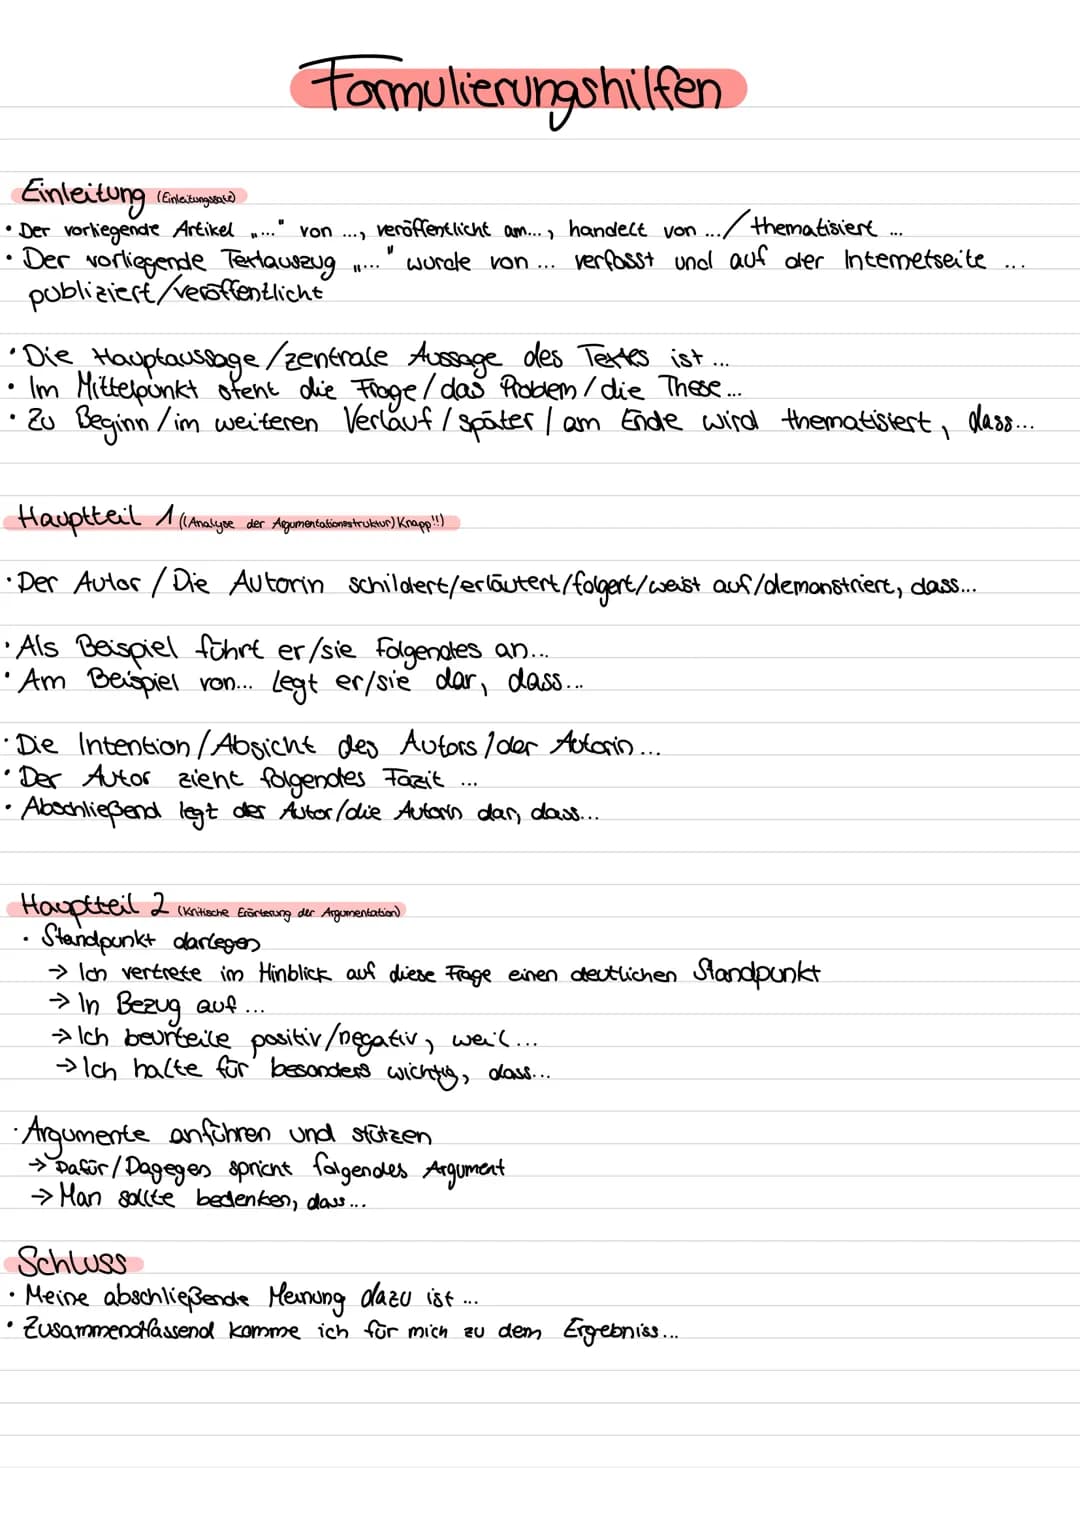 Formulierungshilfen
Einleitung (Einleitungssatz)
• Der vorliegende Artikel „..." von ..., veröffentlicht am..., handelt von .../ thematisiert ...
• Der vorliegende Textauszug „..." wurde von ... verfasst und auf der Internetseite ...
publiziert/veröffentlicht
• Die Hauptaussage/zentrale Aussage des Textes ist...
• Im Mittelpunkt steht die Frage/das Problem/die These...
• Zu Beginn/im weiteren Verlauf/später/am Ende wird thematisiert, dass...
Hauptteil 1 ((Analyse der Argumentationsstruktur) Knapp!!)
• Der Autor/Die Autorin schildert/erläutert/folgert/weist auf/demonstriert, dass...
• Als Beispiel führt er/sie Folgendes an...
• Am Beispiel von... legt er/sie dar, dass...
• Die Intention/Absicht des Autors/der Autorin...
• Der Autor zieht folgendes Fazit ...
• Abschließend legt der Autor/die Autorin dar, dass...
Hauptteil 2 (Kritische Erörterung der Argumentation)
• Standpunkt darlegen
→ Ich vertrete im Hinblick auf diese Frage einen deutlichen Standpunkt
→ In Bezug auf...
→ Ich beurteile positiv/negativ, weil...
→ Ich halte für besonders wichtig, dass...
• Argumente anführen und stützen
→ Dafür/Dagegen spricht folgendes Argument
→ Man sollte bedenken, dass...
Schluss
• Meine abschließende Meinung dazu ist...
• Zusammendfassend komme ich für mich zu dem Ergebniss...